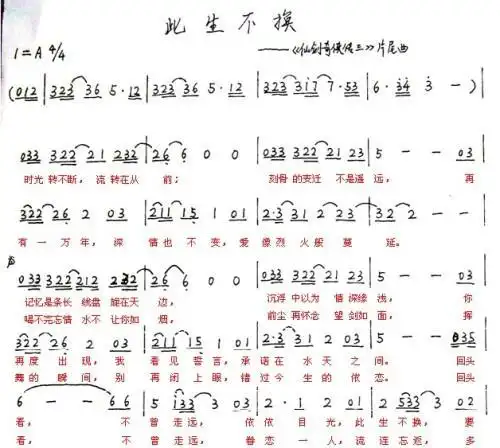 此生不换
1=A 4/4
——《仙剑奇侠传三》片尾曲
(012 | 323 36 5·12 | 323 36 5·12 | 323 317 7·53 | 6·34 3 — )|
033 322 21 232 | 26 6 0 0 | 033 322 21 23 | 5 — — 03 |
时光 转不断，流 转在从 前； 刻骨 的变迁 不是遥 远， 再
322 26 2 03 | 211 15 1 01 | 2·3 31 2 23 | 32 2 — — |
有 一 万年， 深 情也 不 变，爱 像烈 火般 蔓 延。
033 322 212 232 | 26 6 0 0 | 033 322 21 23 | 5 — — 03 |
记忆是条长 线盘 旋在天 边， 沉浮 中以为 情 深缘 浅， 你
喝不完忘情 水不 让你如 烟， 前尘 再不念 望 剑如 面， 挥
322 26 2 03 | 211 15 1 01 | 2·3 31 2 23 | 1 — — 035 |
再度 出现，我 看见 誓言，承 诺在 水天 之 间。 回头
舞的 瞬间，别 再闭 上眼，错 过今 生的 依 恋。 回头
6 — — 66 | 5 133 3 03 | 2·3 31 2 23 | 53 3 0 03 |
看， 不 曾走远， 依 依 目光，此 生不 换，要
看， 不 曾走远， 眷 恋 一人，流 连忘 返，多